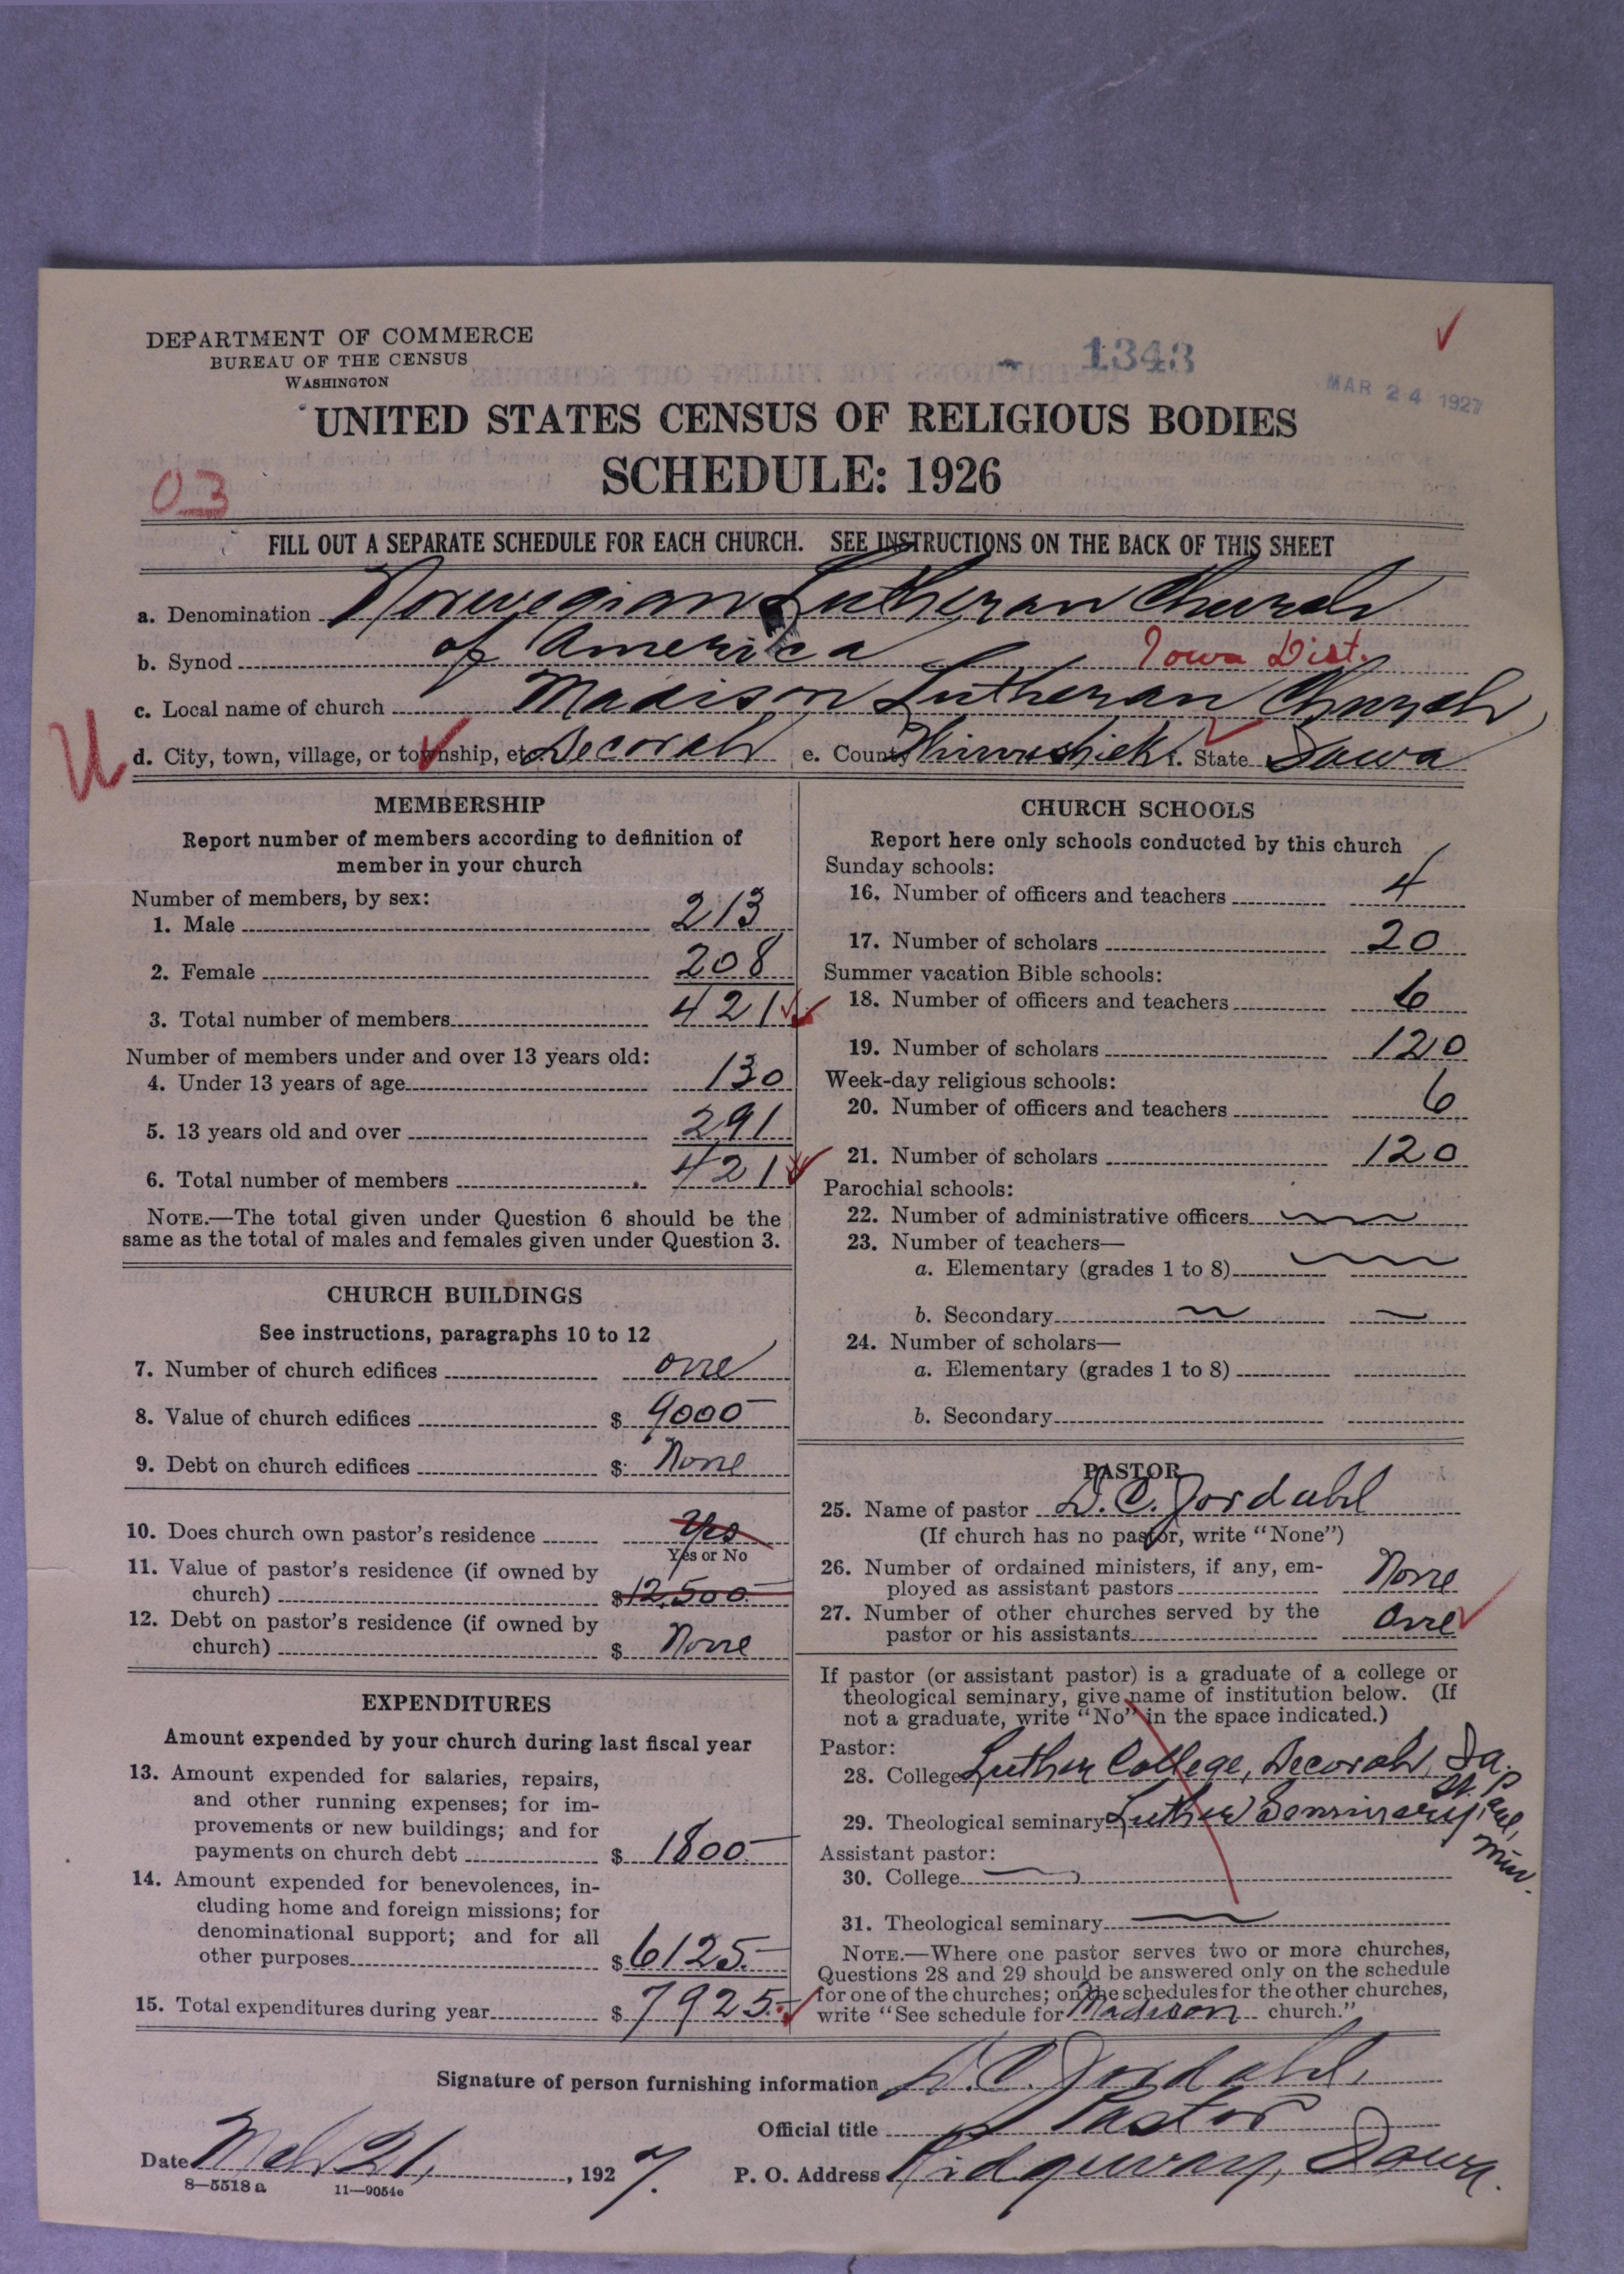 DEPARTMENT OF COMMERCE
BUREAU OF THE CENSUS
WASHINGTON
1343
MAR 24 1927
UNITED STATES CENSUS OF RELIGIOUS BODIES
SCHEDULE: 1926
03
FILL OUT A SEPARATE SCHEDULE FOR EACH CHURCH. SEE INSTRUCTIONS ON THE BACK OF THIS SHEET
a. Denomination Norwegian Lutheran Church
b. Synod of America Iowa Dist.
c. Local name of church Madison Lutheran Church
d. City, town, village, or township, etc. Decorah e. County Winneshiek f. State Iowa
MEMBERSHIP
Report number of members according to definition of
member in your church
Number of members, by sex:
1. Male 213
2. Female 208
3. Total number of members 421
Number of members under and over 13 years old:
4. Under 13 years of age 130
5. 13 years old and over 291
6. Total number of members 421
NOTE.—The total given under Question 6 should be the
same as the total of males and females given under Question 3.
CHURCH BUILDINGS
See instructions, paragraphs 10 to 12
7. Number of church edifices one
8. Value of church edifices $ 9000
9. Debt on church edifices $ None
10. Does church own pastor's residence Yes
Yes or No
11. Value of pastor's residence (if owned by
church) $ 12,500
12. Debt on pastor's residence (if owned by
church) $ None
EXPENDITURES
Amount expended by your church during last fiscal year
13. Amount expended for salaries, repairs,
and other running expenses; for im-
provements or new buildings; and for
payments on church debt $ 1800
14. Amount expended for benevolences, in-
cluding home and foreign missions; for
denominational support; and for all
other purposes $ 6125.
15. Total expenditures during year $ 7925.
CHURCH SCHOOLS
Report here only schools conducted by this church
Sunday schools:
16. Number of officers and teachers 4
17. Number of scholars 20
Summer vacation Bible schools:
18. Number of officers and teachers 6
19. Number of scholars 120
Week-day religious schools:
20. Number of officers and teachers 6
21. Number of scholars 120
Parochial schools:
22. Number of administrative officers
23. Number of teachers—
a. Elementary (grades 1 to 8)
b. Secondary
24. Number of scholars—
a. Elementary (grades 1 to 8)
b. Secondary
PASTOR
25. Name of pastor D. C. Jordahl
(If church has no pastor, write "None")
26. Number of ordained ministers, if any, em-
ployed as assistant pastors None
27. Number of other churches served by the
pastor or his assistants One
If pastor (or assistant pastor) is a graduate of a college or
theological seminary, give name of institution below. (If
not a graduate, write "No" in the space indicated.)
Pastor:
28. College Luther College, Decorah, Ia.
29. Theological seminary Luther Seminary, St. Paul, Minn.
Assistant pastor:
30. College
31. Theological seminary
NOTE.—Where one pastor serves two or more churches,
Questions 28 and 29 should be answered only on the schedule
for one of the churches; on the schedules for the other churches,
write "See schedule for Madison church."
Signature of person furnishing information D. C. Jordahl,
Official title Pastor
Date Mch 21, 1927. P. O. Address Ridgeway, Iowa.
8—5518 a 11—9054c